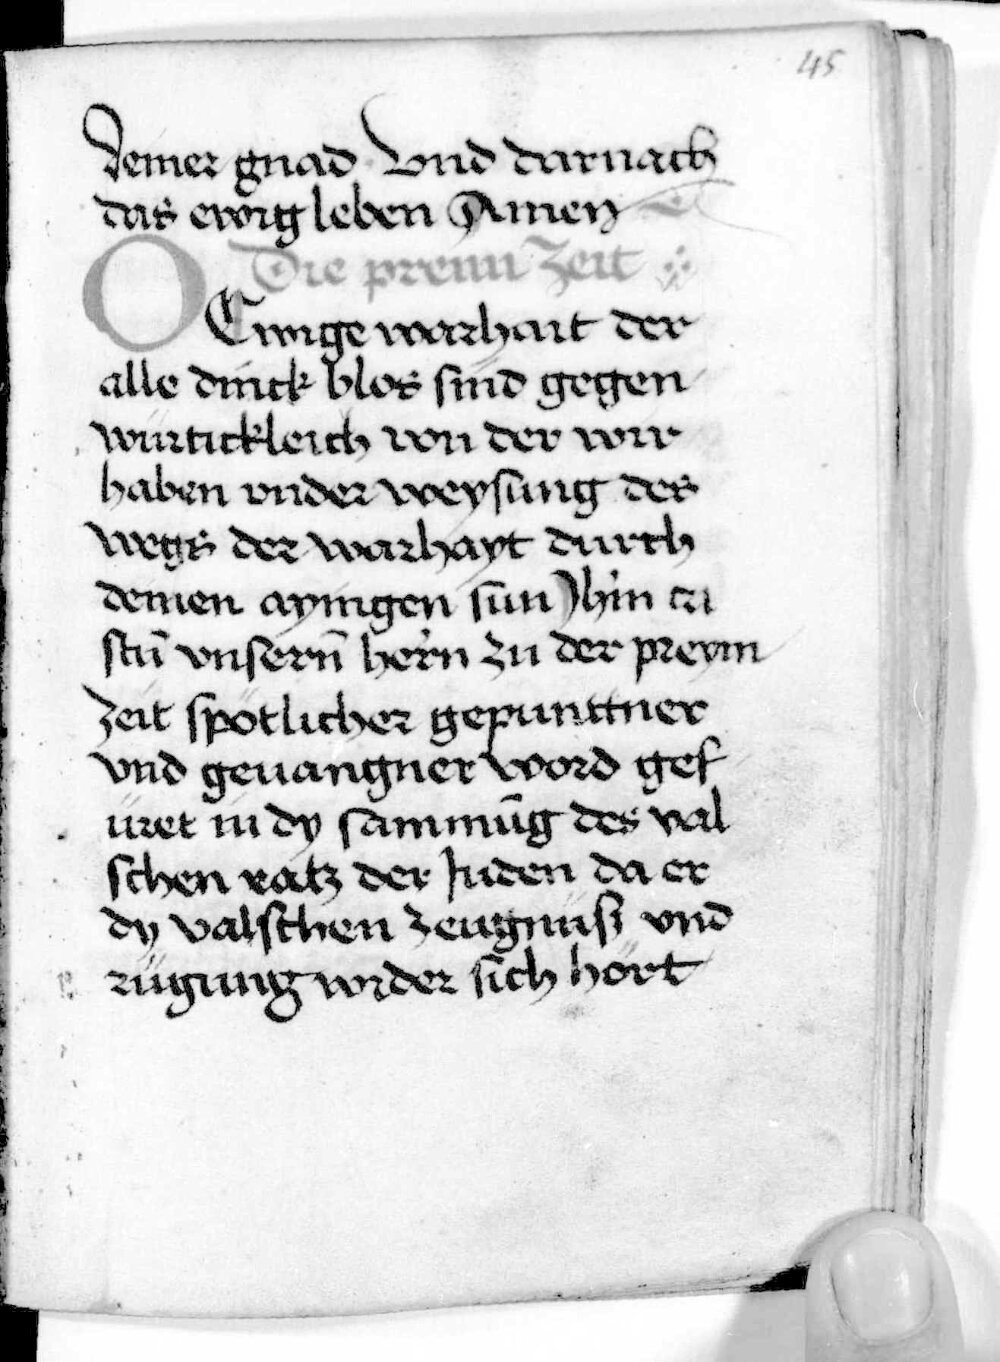 45
deiner gnad · Vnd darnach
das ewig leben Amen
Die preim Zeit
O Ewige warhait der
alle dinck blos sind gegen
würtickleich von der wir
haben vnder weysung des
wegs der warhayt durch
deinen aynigen sun Jhm cri
stū vnsern̄ hern zu der preym
zeit spötlicher gepunttner
vnd geuangner word gef
üret in dy sammūg des val
schen ratz der Juden da er
dy valschen zeugnuss vnd
rügung wider sich hört